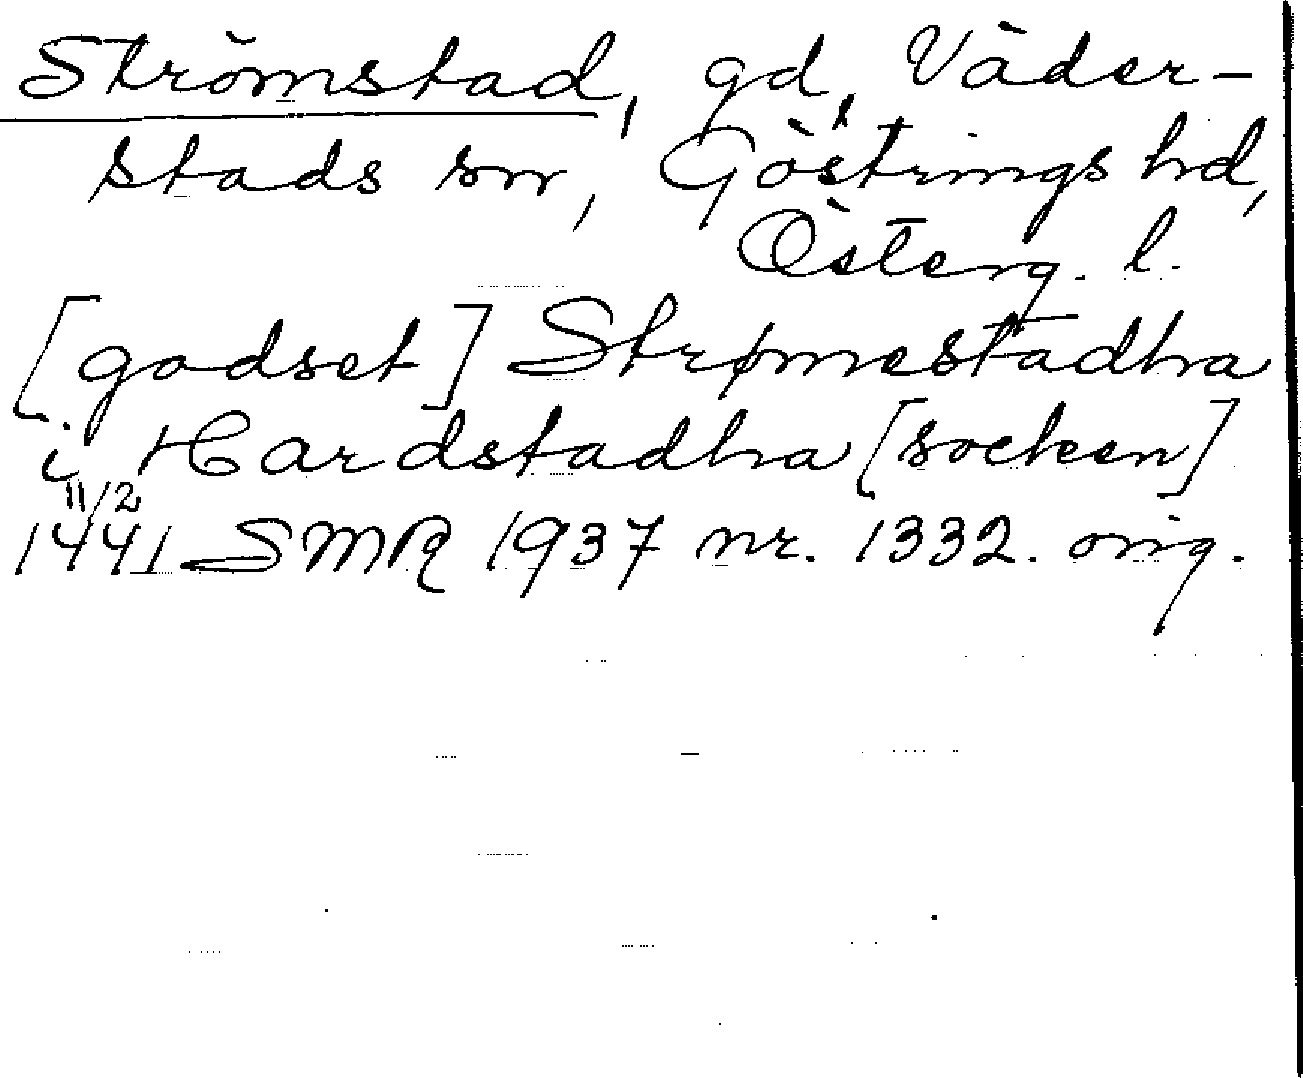 Strömstad, gd, Väder-
stads sn, Göstrings hd,
Österg. l.
[godset] Strømestadha
i Hardstadha [socken]
11/2
1441 SMR 1937 nr. 1332. orig.